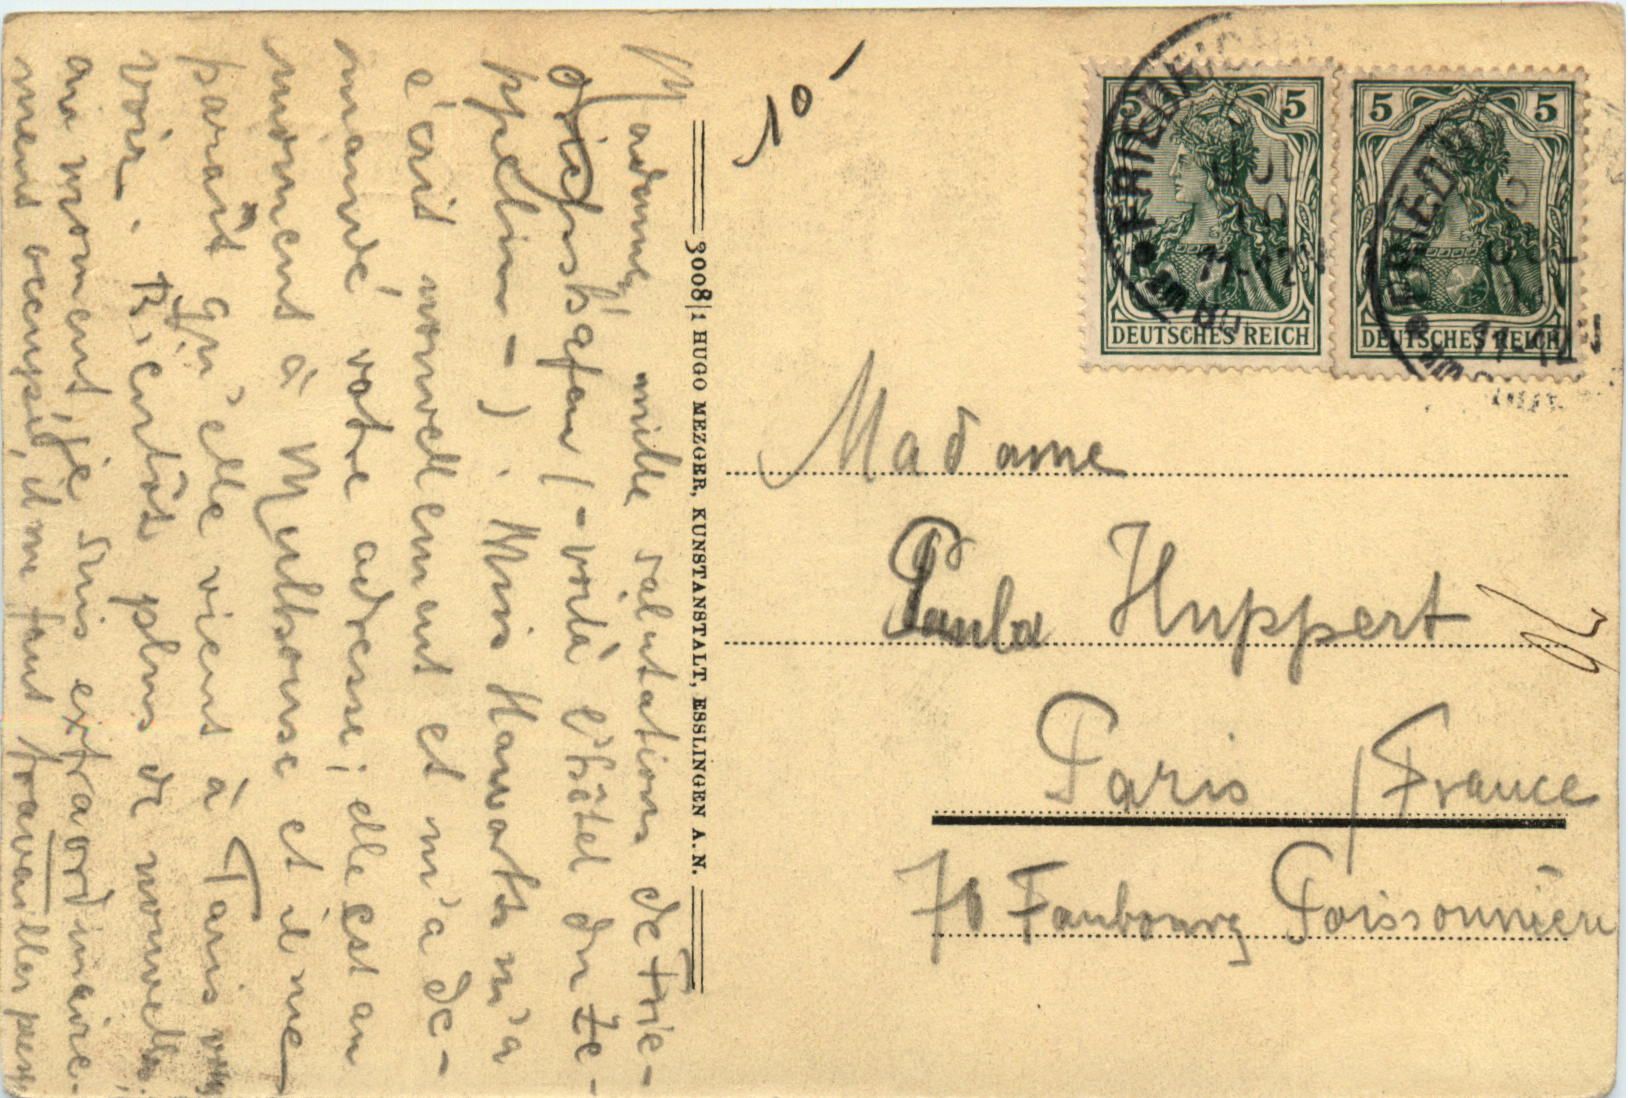 Madame, mille salutations de Frie-
drichshafen (- voilà l'hôtel du Ze-
ppelin -). Miss Haworth m'a
écrit nouvellement et m'a de-
mandé votre adresse; elle est au
moment à Mulhouse et il me
paraît qu'elle vient à Paris vous
voir. Bientôt plus de nouvelles
au moment, je suis extraordinaire-
ment occupé, il me faut travailler
3008/1 HUGO MEZGER, KUNSTANSTALT, ESSLINGEN A. N.
10
5 5
DEUTSCHES REICH
5 5
DEUTSCHES REICH
FRIEDRICH
11-12
FRIEDR
11-12
Madame
Paula Huppert
Paris / France
70 Faubourg Poissonnière